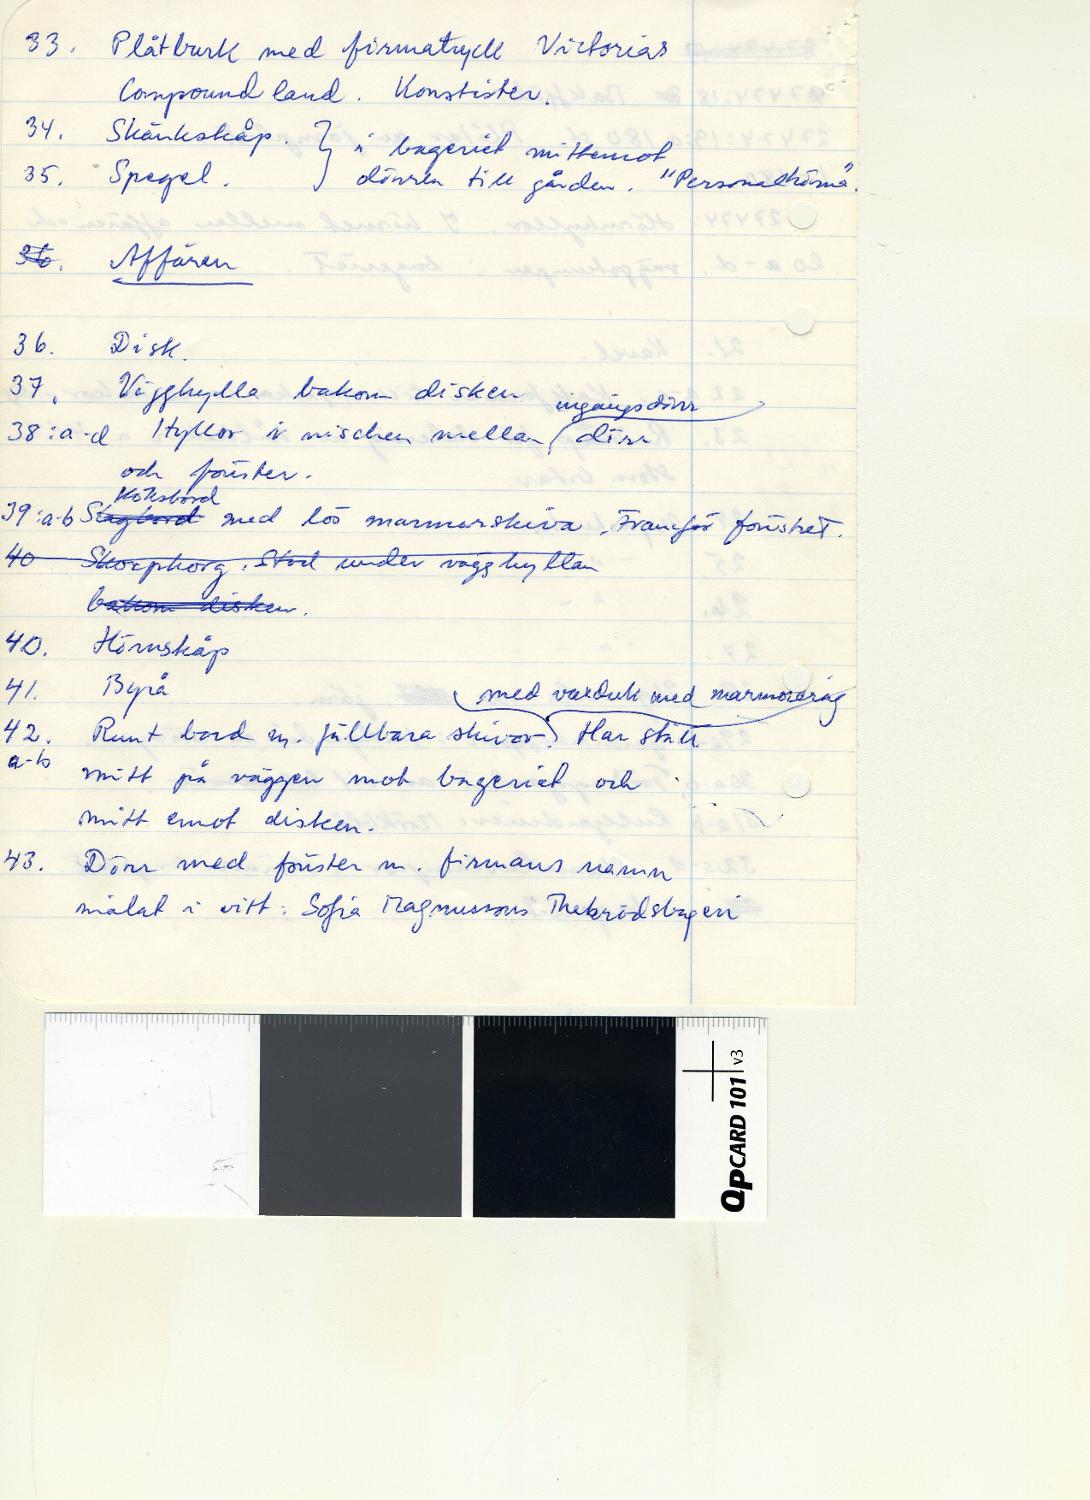 33. Plåtburk med firmatryck Victorias
Compound land. Konstister.
34. Skänkskåp. } i bageriet mittemot
35. Spegel. } dörren till gården. "Personalhörna".
36. Affären
36. Disk.
37. Vägghylla bakom disken.
ingångsdörr
38:a-d Hyllor i nischen mellan dörr
och fönster.
Köksbord
39:a-b Slagbord med lös marmorskiva. Framför fönstret.
40 Skorpkorg. Stod under vägghyllan
bakom disken.
40. Hörnskåp
41. Byrå
med vaxduk med marmorering
42. Runt bord m. fällbara skivor. Har stått
a-b mitt på väggen mot bageriet och
mitt emot disken.
43. Dörr med fönster m. firmans namn
målat i vitt: Sofia Magnussons Thebrödsbageri
QPCARD 101 v3